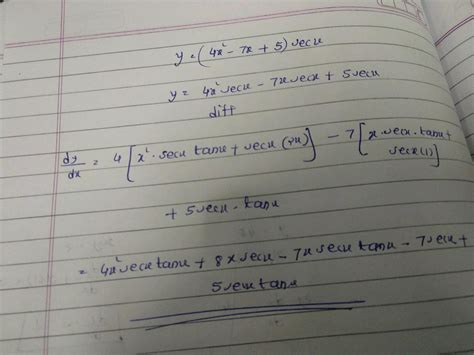 y = (4x² - 7x + 5) secx
y = 4x² secx - 7x secx + 5secx
diff
dy/dx = 4[x² · secx tanx + secx (2x)] - 7[x · secx · tanx + secx(1)]
+ 5 secx · tanx
= 4x² secx tanx + 8x secx - 7x secx tanx - 7secx +
5 secx tanx